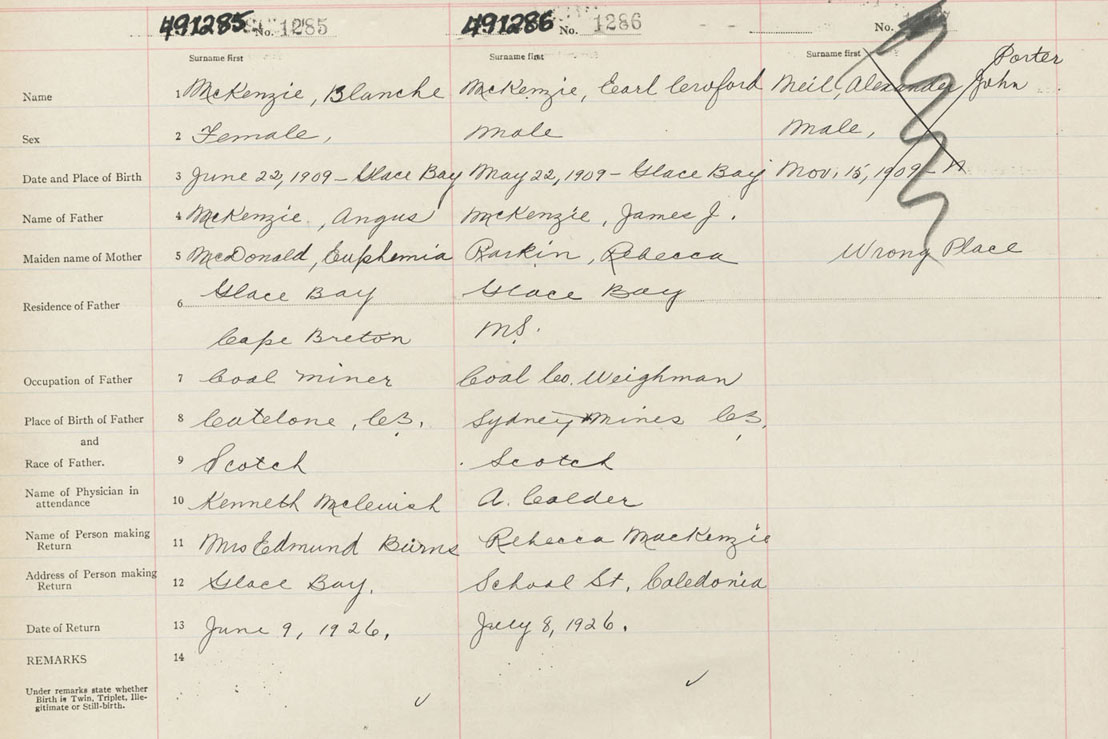 491285 No. 1285 491286 No. 1286 No.
Surname first Surname first Surname first Porter
Name 1 McKenzie, Blanche McKenzie, Earl Crwford Neil, Alexander John
Sex 2 Female, Male Male,
Date and Place of Birth 3 June 22, 1909 - Glace Bay May 22, 1909 - Glace Bay Nov. 15, 1909 - N
Name of Father 4 McKenzie, Angus McKenzie, James J.
Maiden name of Mother 5 McDonald, Euphemia Rankin, Rebecca Wrong Place
Residence of Father 6 Glace Bay Glace Bay
Cape Breton NS.
Occupation of Father 7 Coal miner Coal Co. Weighman
Place of Birth of Father 8 Catelone, CB. Sydney Mines CB.
and
Race of Father. 9 Scotch Scotch
Name of Physician in
attendance 10 Kenneth A. Calder
Name of Person making
Return 11 Mrs Edmund Burns Rebecca MacKenzie
Address of Person making
Return 12 Glace Bay. School St. Caledonia
Date of Return 13 June 9, 1926. July 8, 1926.
REMARKS 14
Under remarks state whether
Birth is Twin, Triplet, Ille-
gitimate or Still-birth.